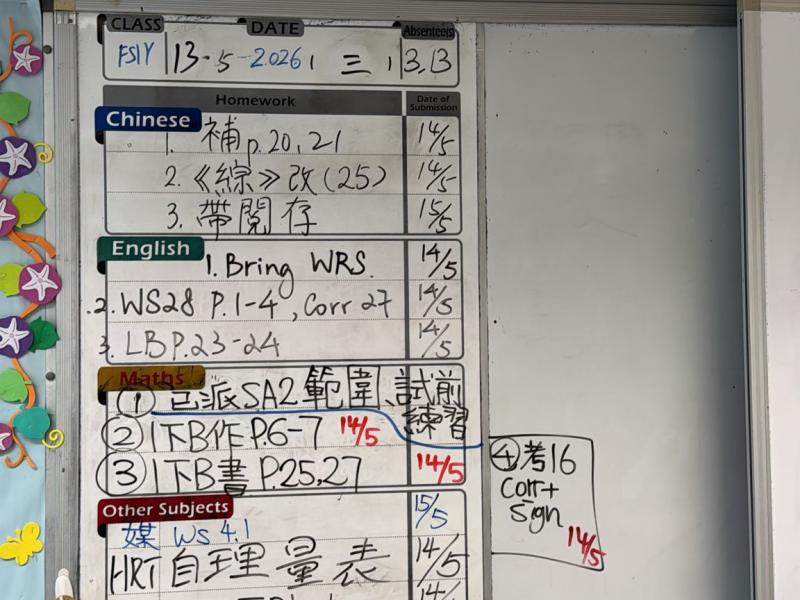 CLASS DATE Absentees
FS1Y 13-5-2026, 三, 3,13
Homework Date of Submission
Chinese
1. 補p.20,21 14/5
2.《綜》改(25) 14/5
3. 帶閱存 15/5
English
1. Bring WRS. 14/5
2. WS28 P.1-4, Corr 27 14/5
3. LB P.23-24 14/5
Maths
① 已派SA2範圍、試前練習
② 1下B作P.6-7 14/5
③ 1下B書 P.25,27 14/5
④考16
Corr+
sign
14/5
Other Subjects
媒 WS 4.1 15/5
HRT自理量表 14/5
14/